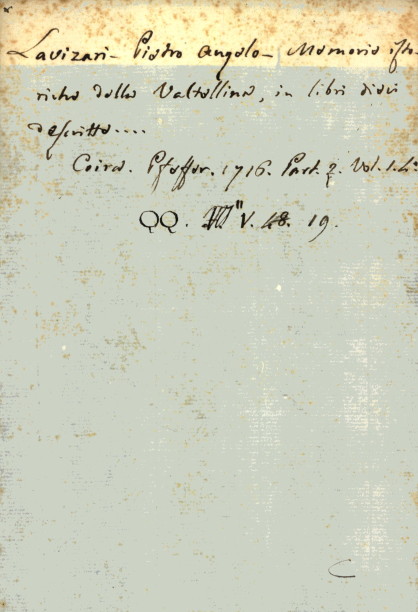 Lavizari - Pietro Angelo - Memorie isto-
riche della Valtellina, in libri dieci
descritte....
Coira. Pfeffer. 1716. Part. 2. Vol. 1. 4.°
QQ. V. 48. 19.